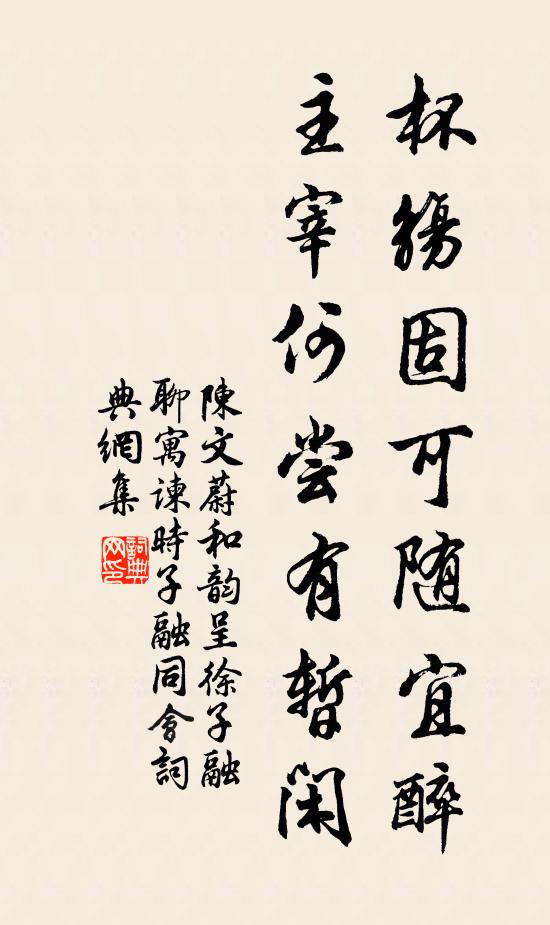 杯觴固可随宜醉
主宰何尝有暫閑
陳文蔚和韵呈徐子融
聊寓諫時子融同會詞
典網集
詞典网印